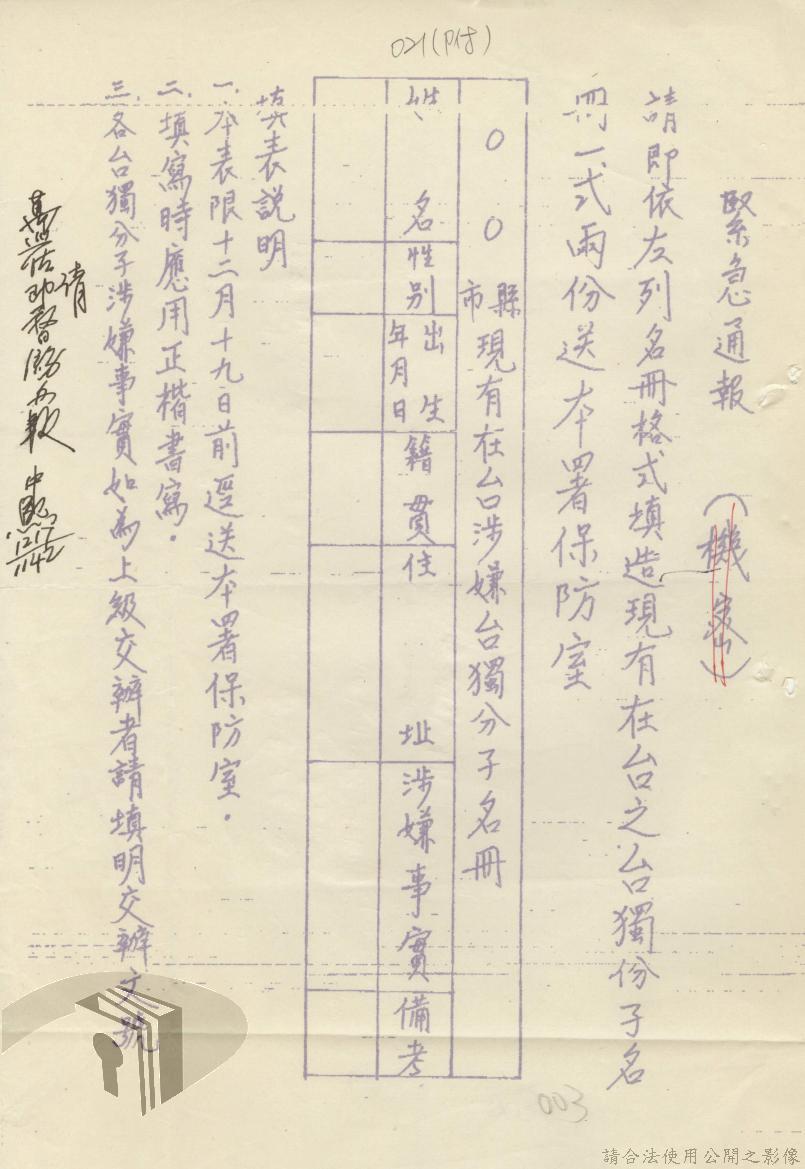 021(附)
緊急通報 (機密)
請即依左列名冊格式填造現有在台之台獨份子名
冊一式兩份送本署保防室
○○市縣現有在台涉嫌台獨分子名冊
姓名
性別
出生年月日
籍貫
住址
涉嫌事實
備考
填表說明
一、本表限十二月十九日前逕送本署保防室。
二、填寫時應用正楷書寫。
三、各台獨分子涉嫌事實如為上級交辦者請填明交辦文號
請
1217
1142
003
請合法使用公開之影像